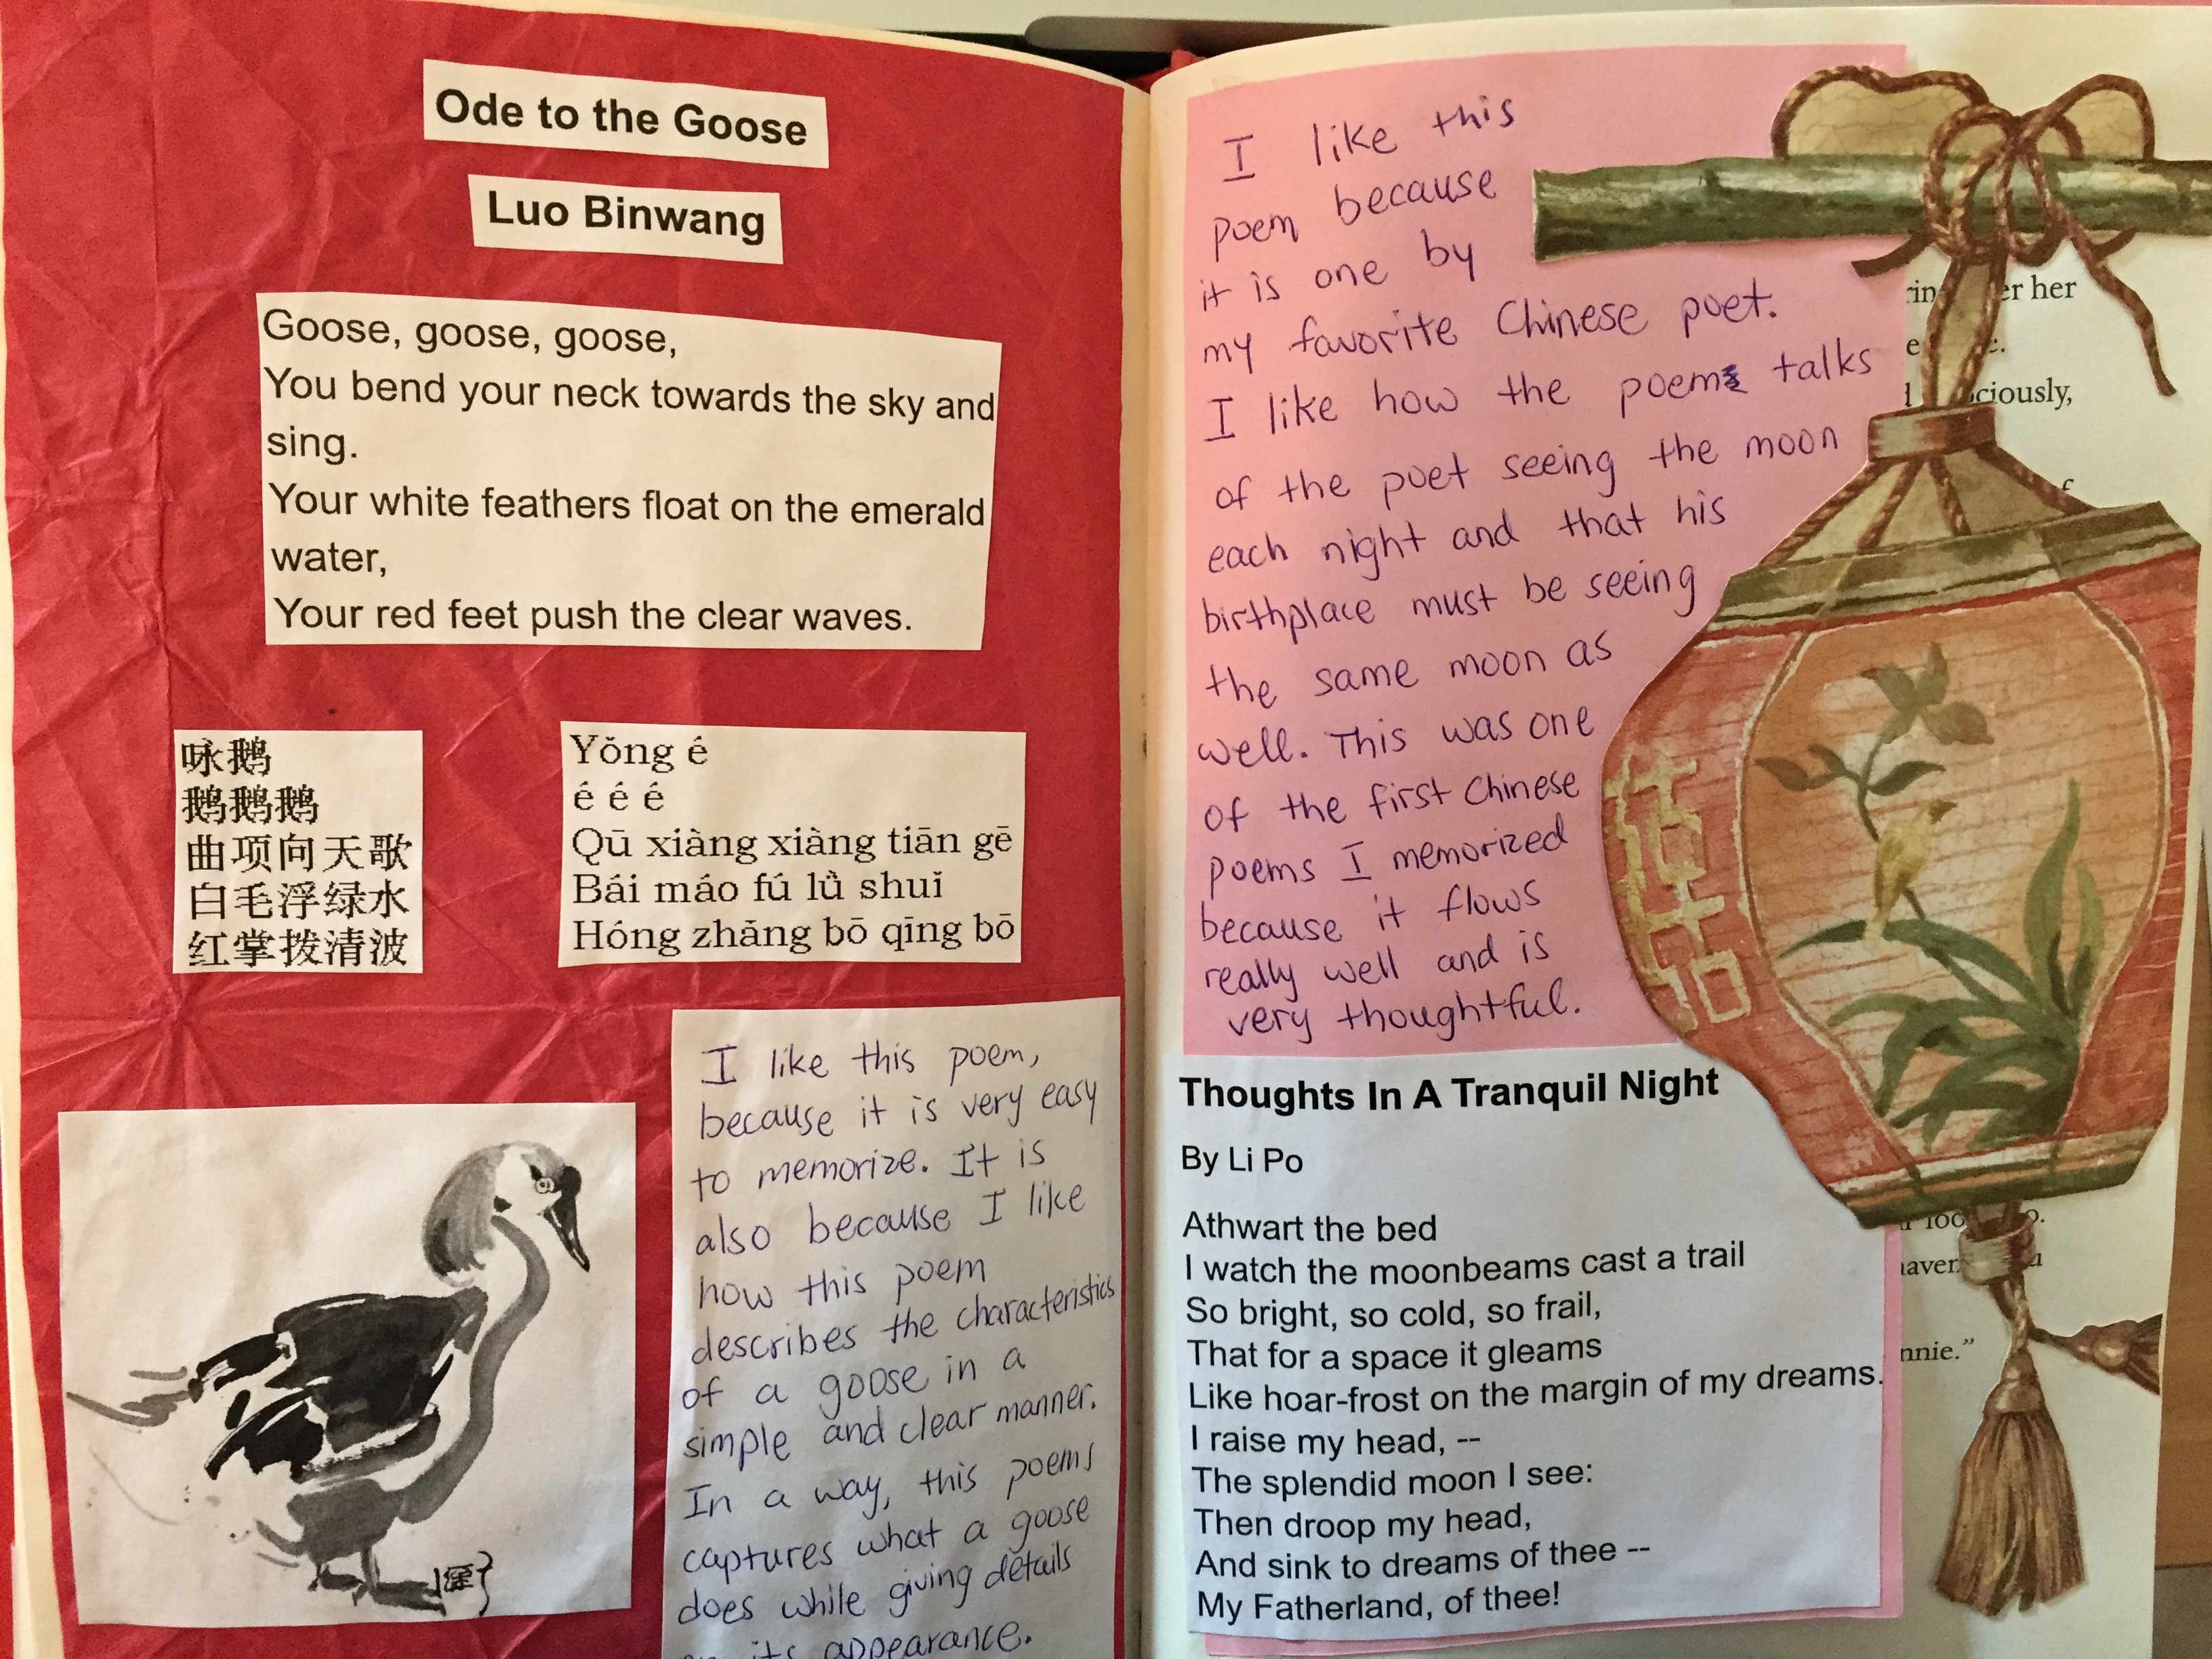 Ode to the Goose
Luo Binwang
Goose, goose, goose,
You bend your neck towards the sky and
sing.
Your white feathers float on the emerald
water,
Your red feet push the clear waves.
咏鹅
鹅鹅鹅
曲项向天歌
白毛浮绿水
红掌拨清波
Yǒng é
é é é
Qū xiàng xiàng tiān gē
Bái máo fú lǜ shuǐ
Hóng zhǎng bō qīng bō
I like this poem,
because it is very easy
to memorize. It is
also because I like
how this poem
describes the characteristics
of a goose in a
simple and clear manner.
In a way, this poems
captures what a goose
does while giving details
on its appearance.
I like this
poem because
it is one by
my favorite Chinese poet.
I like how the poem talks
of the poet seeing the moon
each night and that his
birthplace must be seeing
the same moon as
well. This was one
of the first Chinese
poems I memorized
because it flows
really well and is
very thoughtful.
Thoughts In A Tranquil Night
By Li Po
Athwart the bed
I watch the moonbeams cast a trail
So bright, so cold, so frail,
That for a space it gleams
Like hoar-frost on the margin of my dreams.
I raise my head, --
The splendid moon I see:
Then droop my head,
And sink to dreams of thee --
My Fatherland, of thee!
her
ciously,
nnie.”